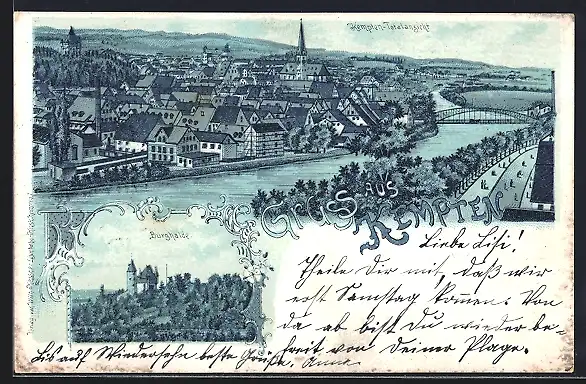 Kempten-Totalansicht
Gruss aus
Kempten
Burghalde
Liebe Lisi!
Theile Dir mit, daß wir
erst Samstag kommen. Von
da ab bist Du wieder be-
freit von Deiner Plage.
Bis auf Wiedersehn beste Grüße. Anna